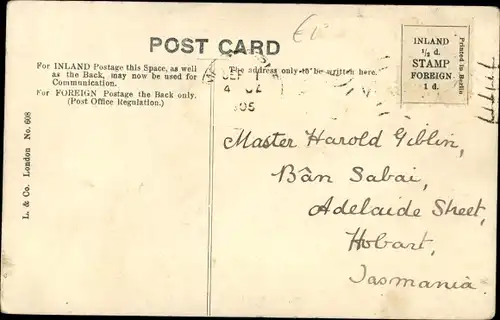 POST CARD
For INLAND Postage this Space, as well
as the Back, may now be used for
Communication.
For FOREIGN Postage the Back only.
(Post Office Regulation.)
The address only to be written here.
INLAND
½ d.
STAMP
FOREIGN
1 d.
Printed in Berlin
L. & Co. London No. 608
Master Harold Giblin,
Bân Sabai,
Adelaide Street,
Hobart,
Tasmania.